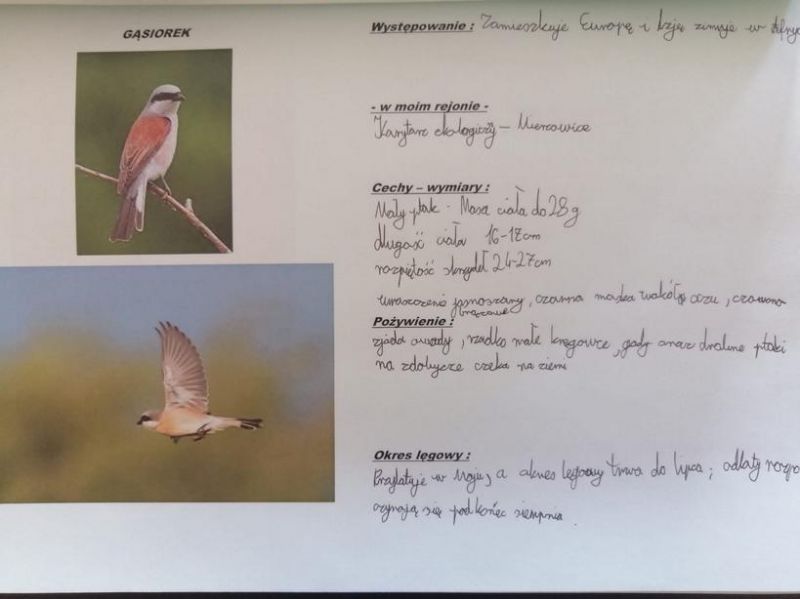 GĄSIOREK
Występowanie : Zamieszkuje Europę i Azję zimuje w
- w moim rejonie -
Korytarz ekologiczny –
Cechy – wymiary :
Mały ptak - Masa ciała do 28 g
długość ciała 16-17cm
rozpiętość skrzydeł 24-27cm
jasnoszary, czarna maska wokół oczu, czerwono
brązowe
Pożywienie :
zjada owady, rzadko małe kręgowce, gady oraz drobne ptaki
na zdobycze czeka na ziemi
Okres lęgowy :
Przylatuje w Maju, a okres lęgowy trwa do lipca ; odloty rozpo
czynają się pod koniec sierpnia.